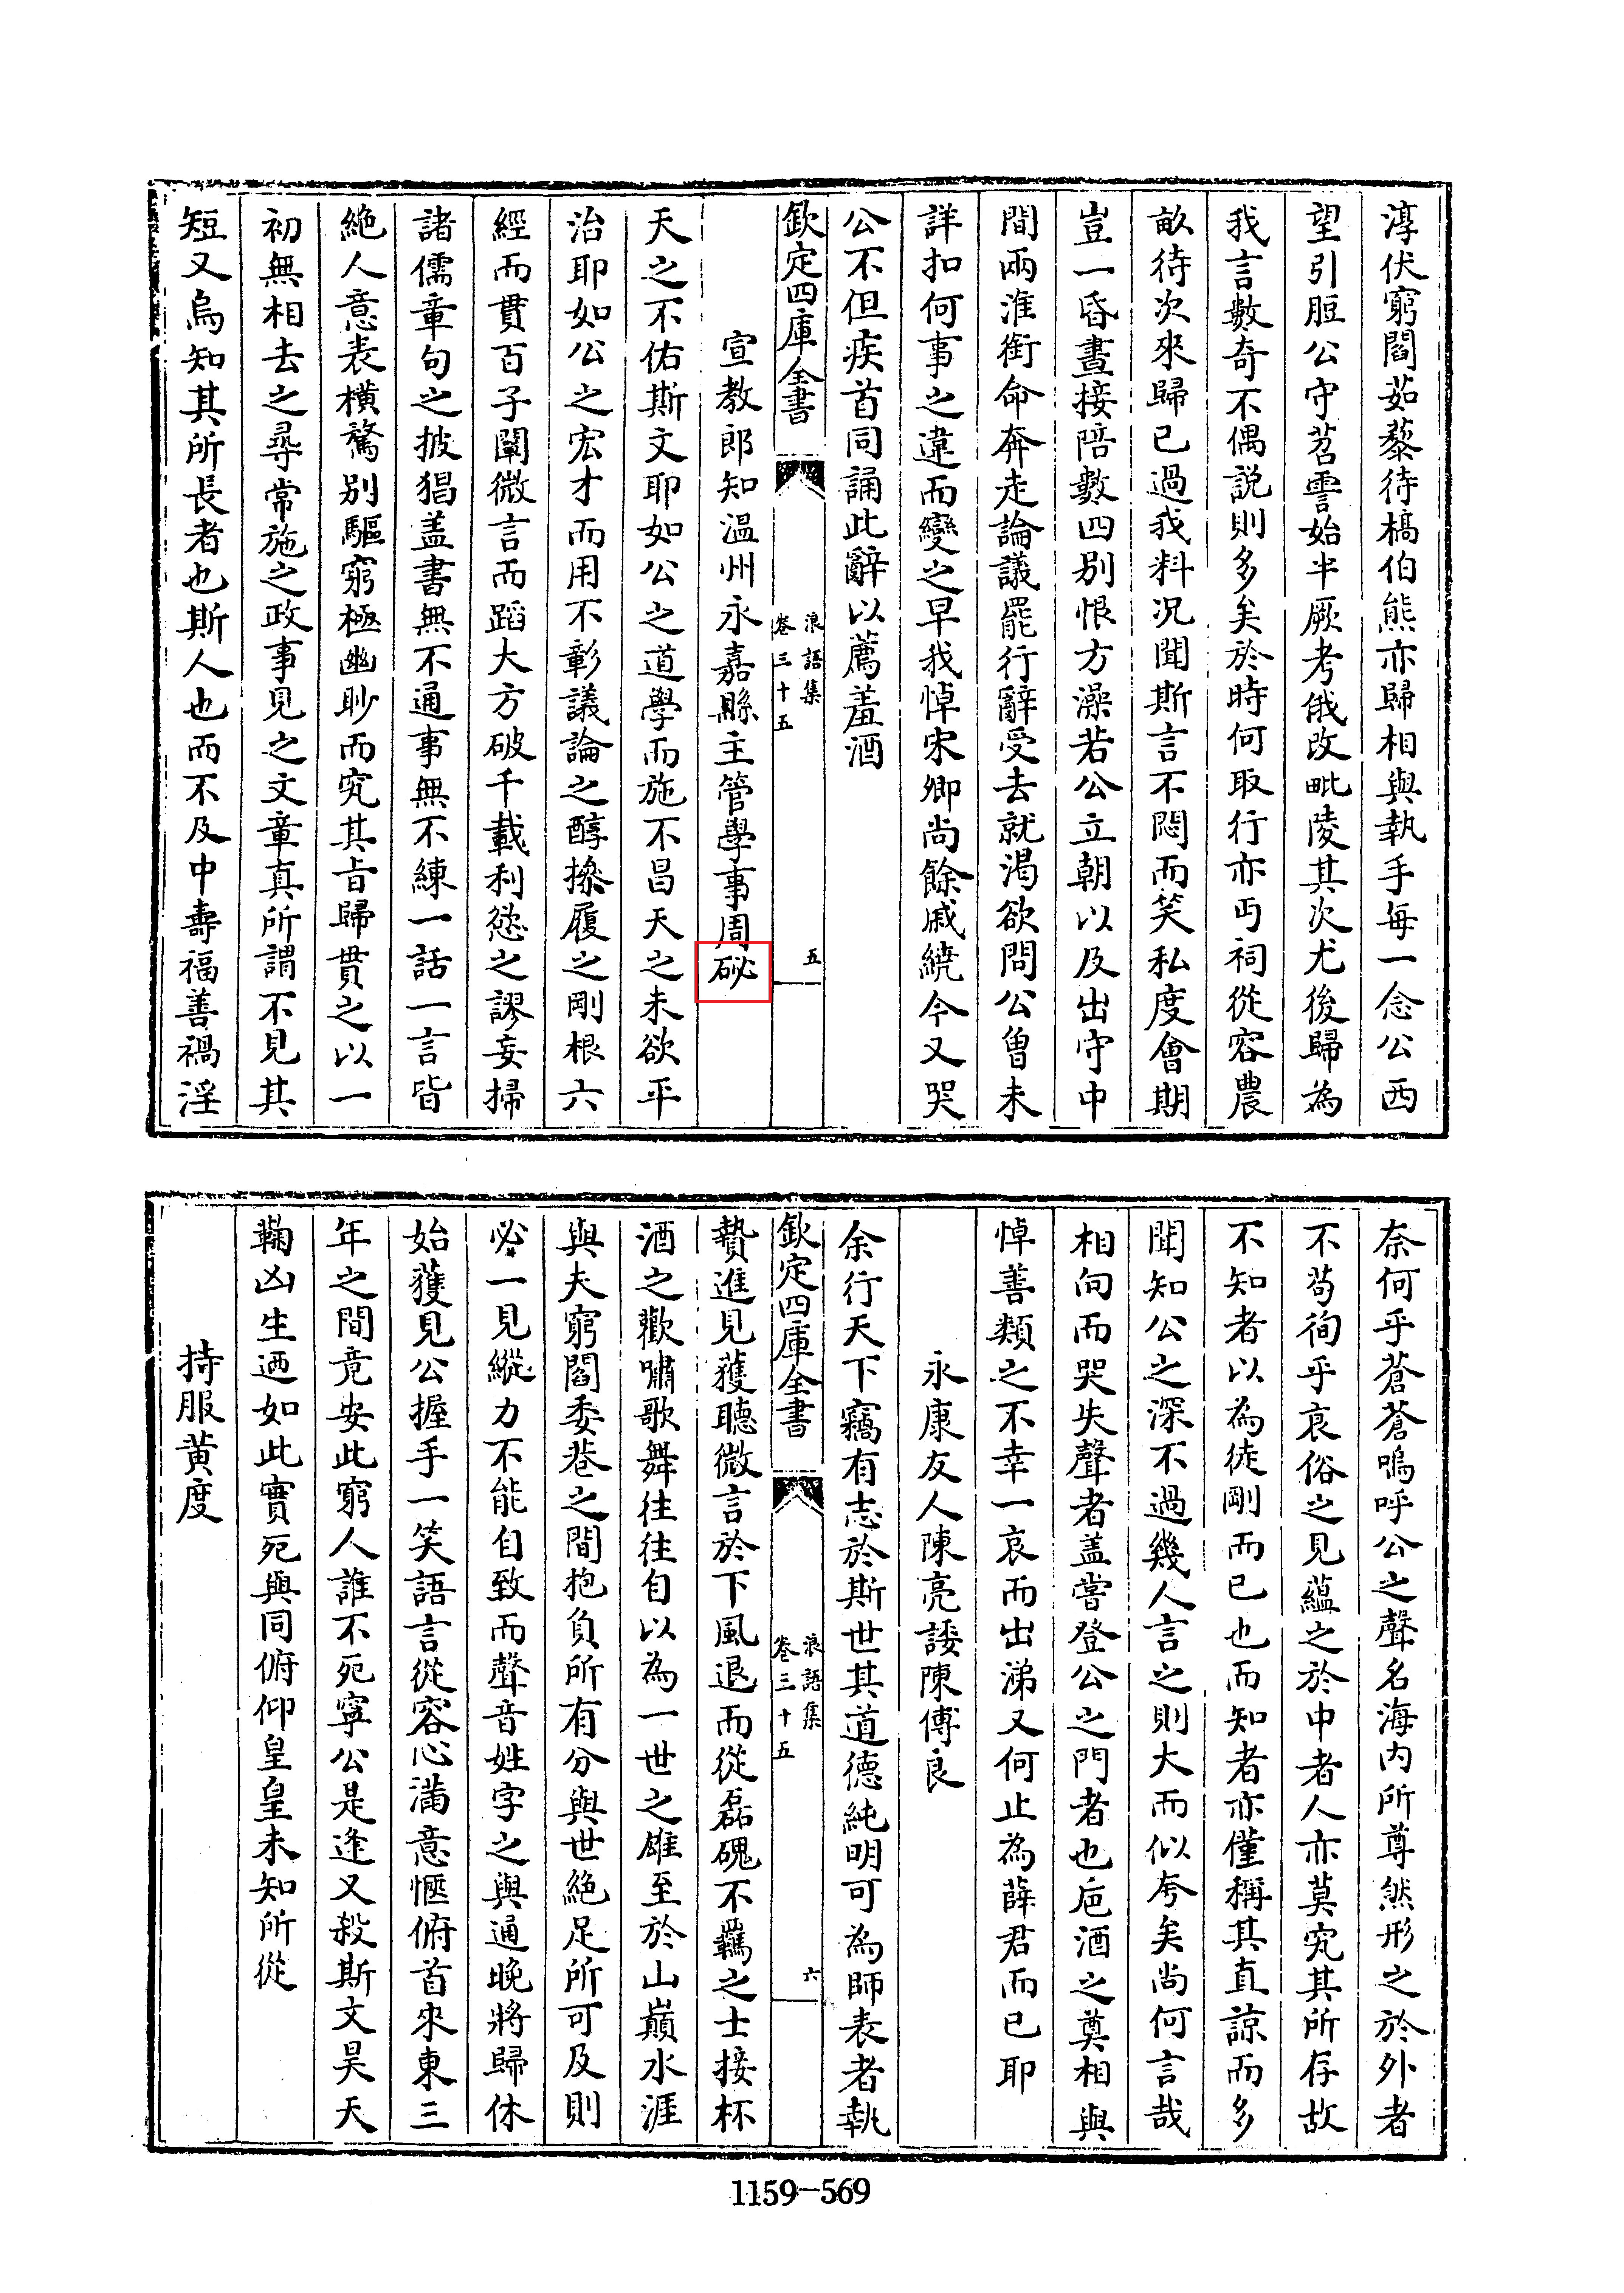 淳伏窮閻茹藜待槁伯熊亦歸相與執手每一念公西
望引脰公守苕霅始半厥考俄改毗陵其次尤後歸為
我言數奇不偶説則多矣於時何取行亦丏祠從容農
畝待次來歸已過我料况聞斯言不悶而笑私度會期
豈一昏晝接陪數四别恨方深若公立朝以及出守中
間兩淮銜命奔走論議罷行辭受去就渇欲問公曾未
詳扣何事之違而變之早我悼宋卿尚餘戚繞今又哭
公不但疾首同誦此辭以薦羞酒
欽定四庫全書
浪語集
卷三十五
五
宣教郎知温州永嘉縣主管學事周䂦
天之不佑斯文耶如公之道學而施不昌天之未欲平
治耶如公之宏才而用不彰議論之醇摻履之剛根六
經而貫百子闡微言而蹈大方破千載利慾之謬妄掃
諸儒章句之披猖盖書無不通事無不練一話一言皆
絶人意表橫騖别驅窮極幽眇而究其㫖歸貫之以一
初無相去之尋常施之政事見之文章真所謂不見其
短又烏知其所長者也斯人也而不及中壽福善禍淫
奈何乎蒼蒼嗚呼公之聲名海内所尊然形之於外者
不茍徇乎哀俗之見蘊之於中者人亦莫究其所存故
不知者以為徒剛而已也而知者亦僅稱其直諒而多
聞知公之深不過幾人言之則大而似夸矣尚何言哉
相向而哭失聲者盖嘗登公之門者也巵酒之奠相與
悼善類之不幸一哀而出涕又何止為薛君而已耶
永康友人陳亮諉陳傅良
余行天下竊有志於斯世其道德純明可為師表者執
欽定四庫全書
浪語集
卷三十五
六
贄進見獲聽微言於下風退而從磊磈不羈之士接杯
酒之歡嘯歌舞往往自以為一世之雄至於山巔水涯
與夫窮閻委巷之間抱負所有分與世絶足所可及則
必一見縱力不能自致而聲音姓字之與通晚將歸休
始獲見公握手一笑語言從容心滿意愜俯首來東三
年之間竟安此窮人誰不死寧公是逢又殺斯文昊天
鞠凶生迺如此實死與同俯仰皇皇未知所從
持服黄度
1159—569